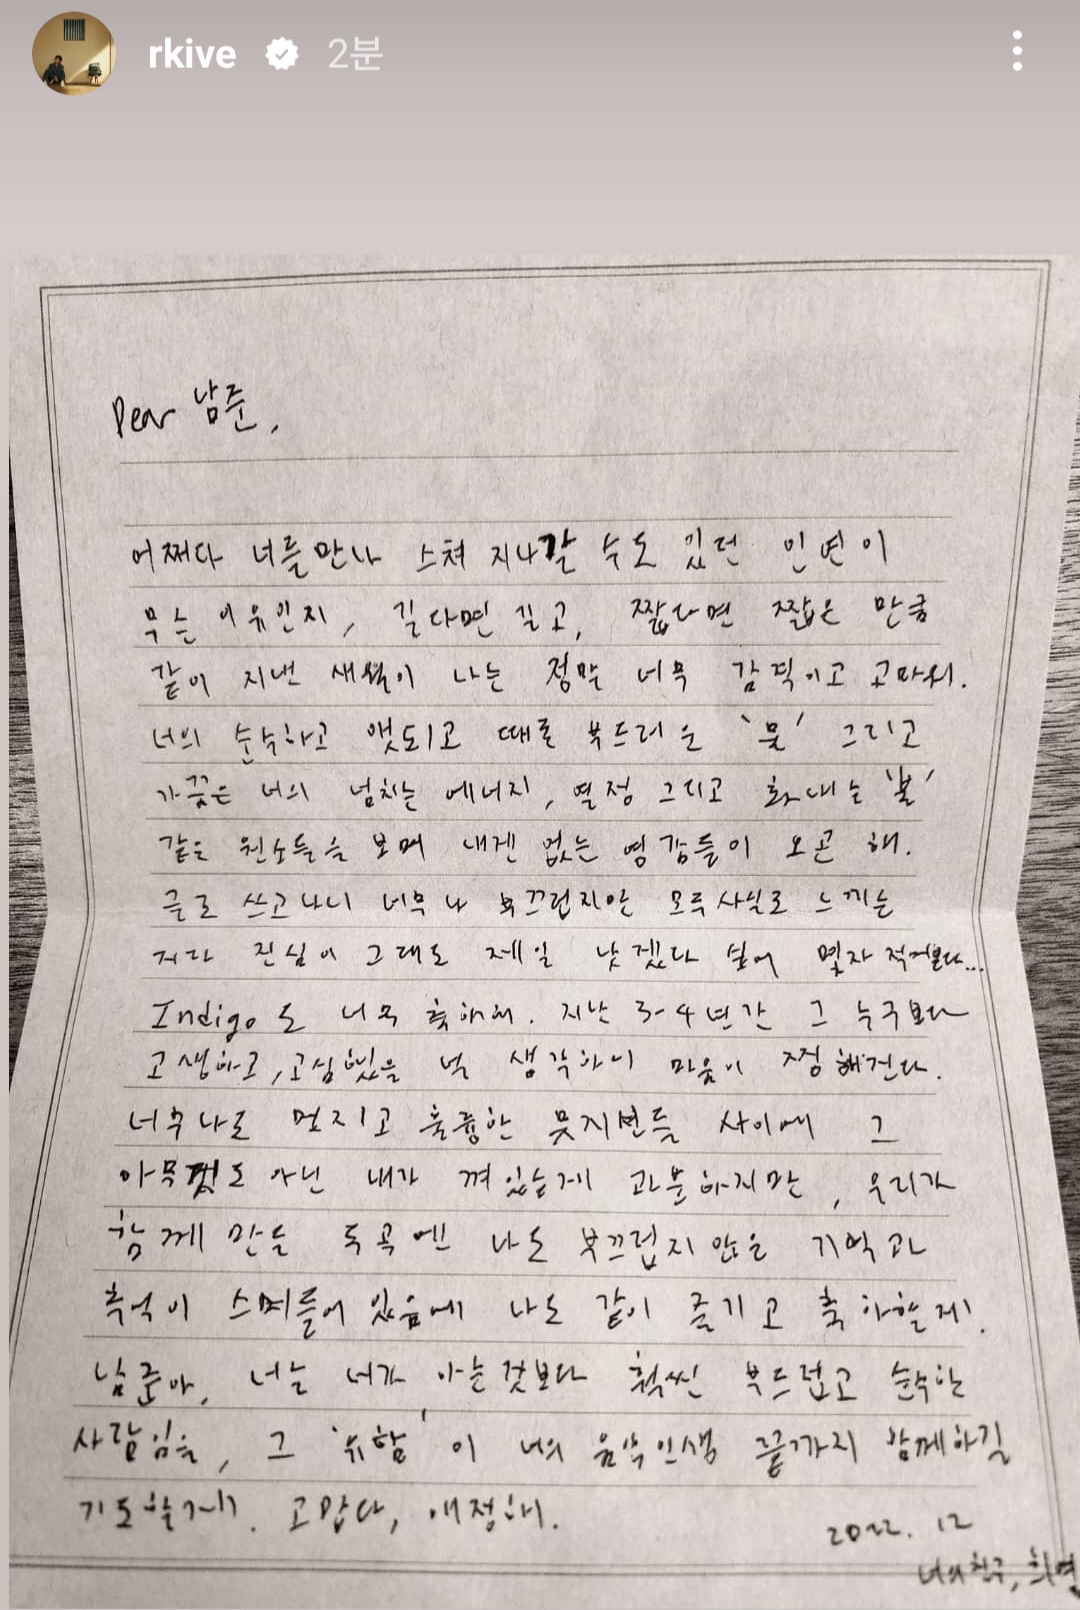 rkive 2분
Dear 남준,
어쩌다 너를 만나 스쳐 지나갈 수도 있던 인연이
무슨 이유인지, 길다면 길고, 짧다면 짧은 만큼
같이 지낸 새월이 나는 정말 너무 감격이고 고마워.
너의 순수하고 앳되고 때로 부드러운 '물' 그리고
가끔은 너의 넘치는 에너지, 열정 그리고 화내는 '불'
같은 원소들을 보며 내겐 없는 영감들이 오곤 해.
글로 쓰고나니 너무나 부끄럽지만 모두 사실로 느끼는
지라 진심이 그래도 제일 낫겠다 싶어 몇자 적어본다...
Indigo도 너무 축하해. 지난 3-4년간 그 누구보다
고생하고, 고심했을 널 생각하니 마음이 찡해진다.
너무나도 멋지고 훌륭한 뮤지션들 사이에 그
아무것도 아닌 내가 껴있는게 과분하지만, 우리가
함께 만든 두곡엔 나도 부끄럽지 않은 기억과
추억이 스며들어 있음에 나도 같이 즐기고 축하할게!
남준아, 너는 너가 아는것보다 훨씬 부드럽고 순수한
사람임을, 그 '유함'이 너의 음악인생 끝까지 함께하길
기도할게. 고맙다, 애정해.
2022. 12
너의 친구, 희연